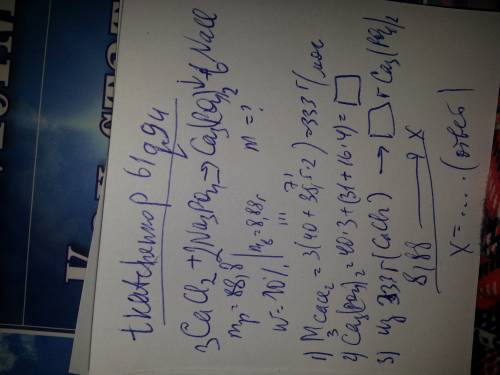 tkatchennop 61
9.94
3CaCl2 + 2Na3PO4 → Ca3(PO4)2↓ + 6NaCl
mp = 88,8 m = ?
w = 10% | mb = 8,88г
1) M 3CaCl2 = 3(40 + 35,5·2) = 333 г/моль
71 111
2) Ca3(PO4)2 = 40·3 + (31 + 16·4) = □
3) из 333г (CaCl2) → □ г Ca3(PO4)2
8,88 — X
X = .... (ответ)